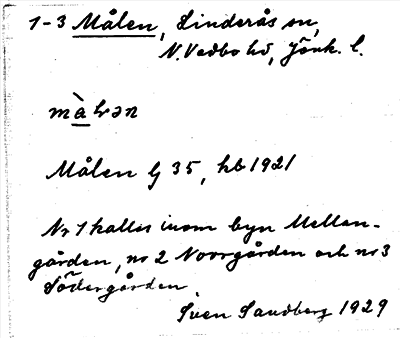 1-3 Målen, Linderås sn,
N. Vedbo hd, Jönk. l.
Målen G 35, hb 1921
Nr 1 kallas inom byn Mellan-
gården, nr 2 Norrgården och nr 3
Södergården.
Sven Sandberg 1929